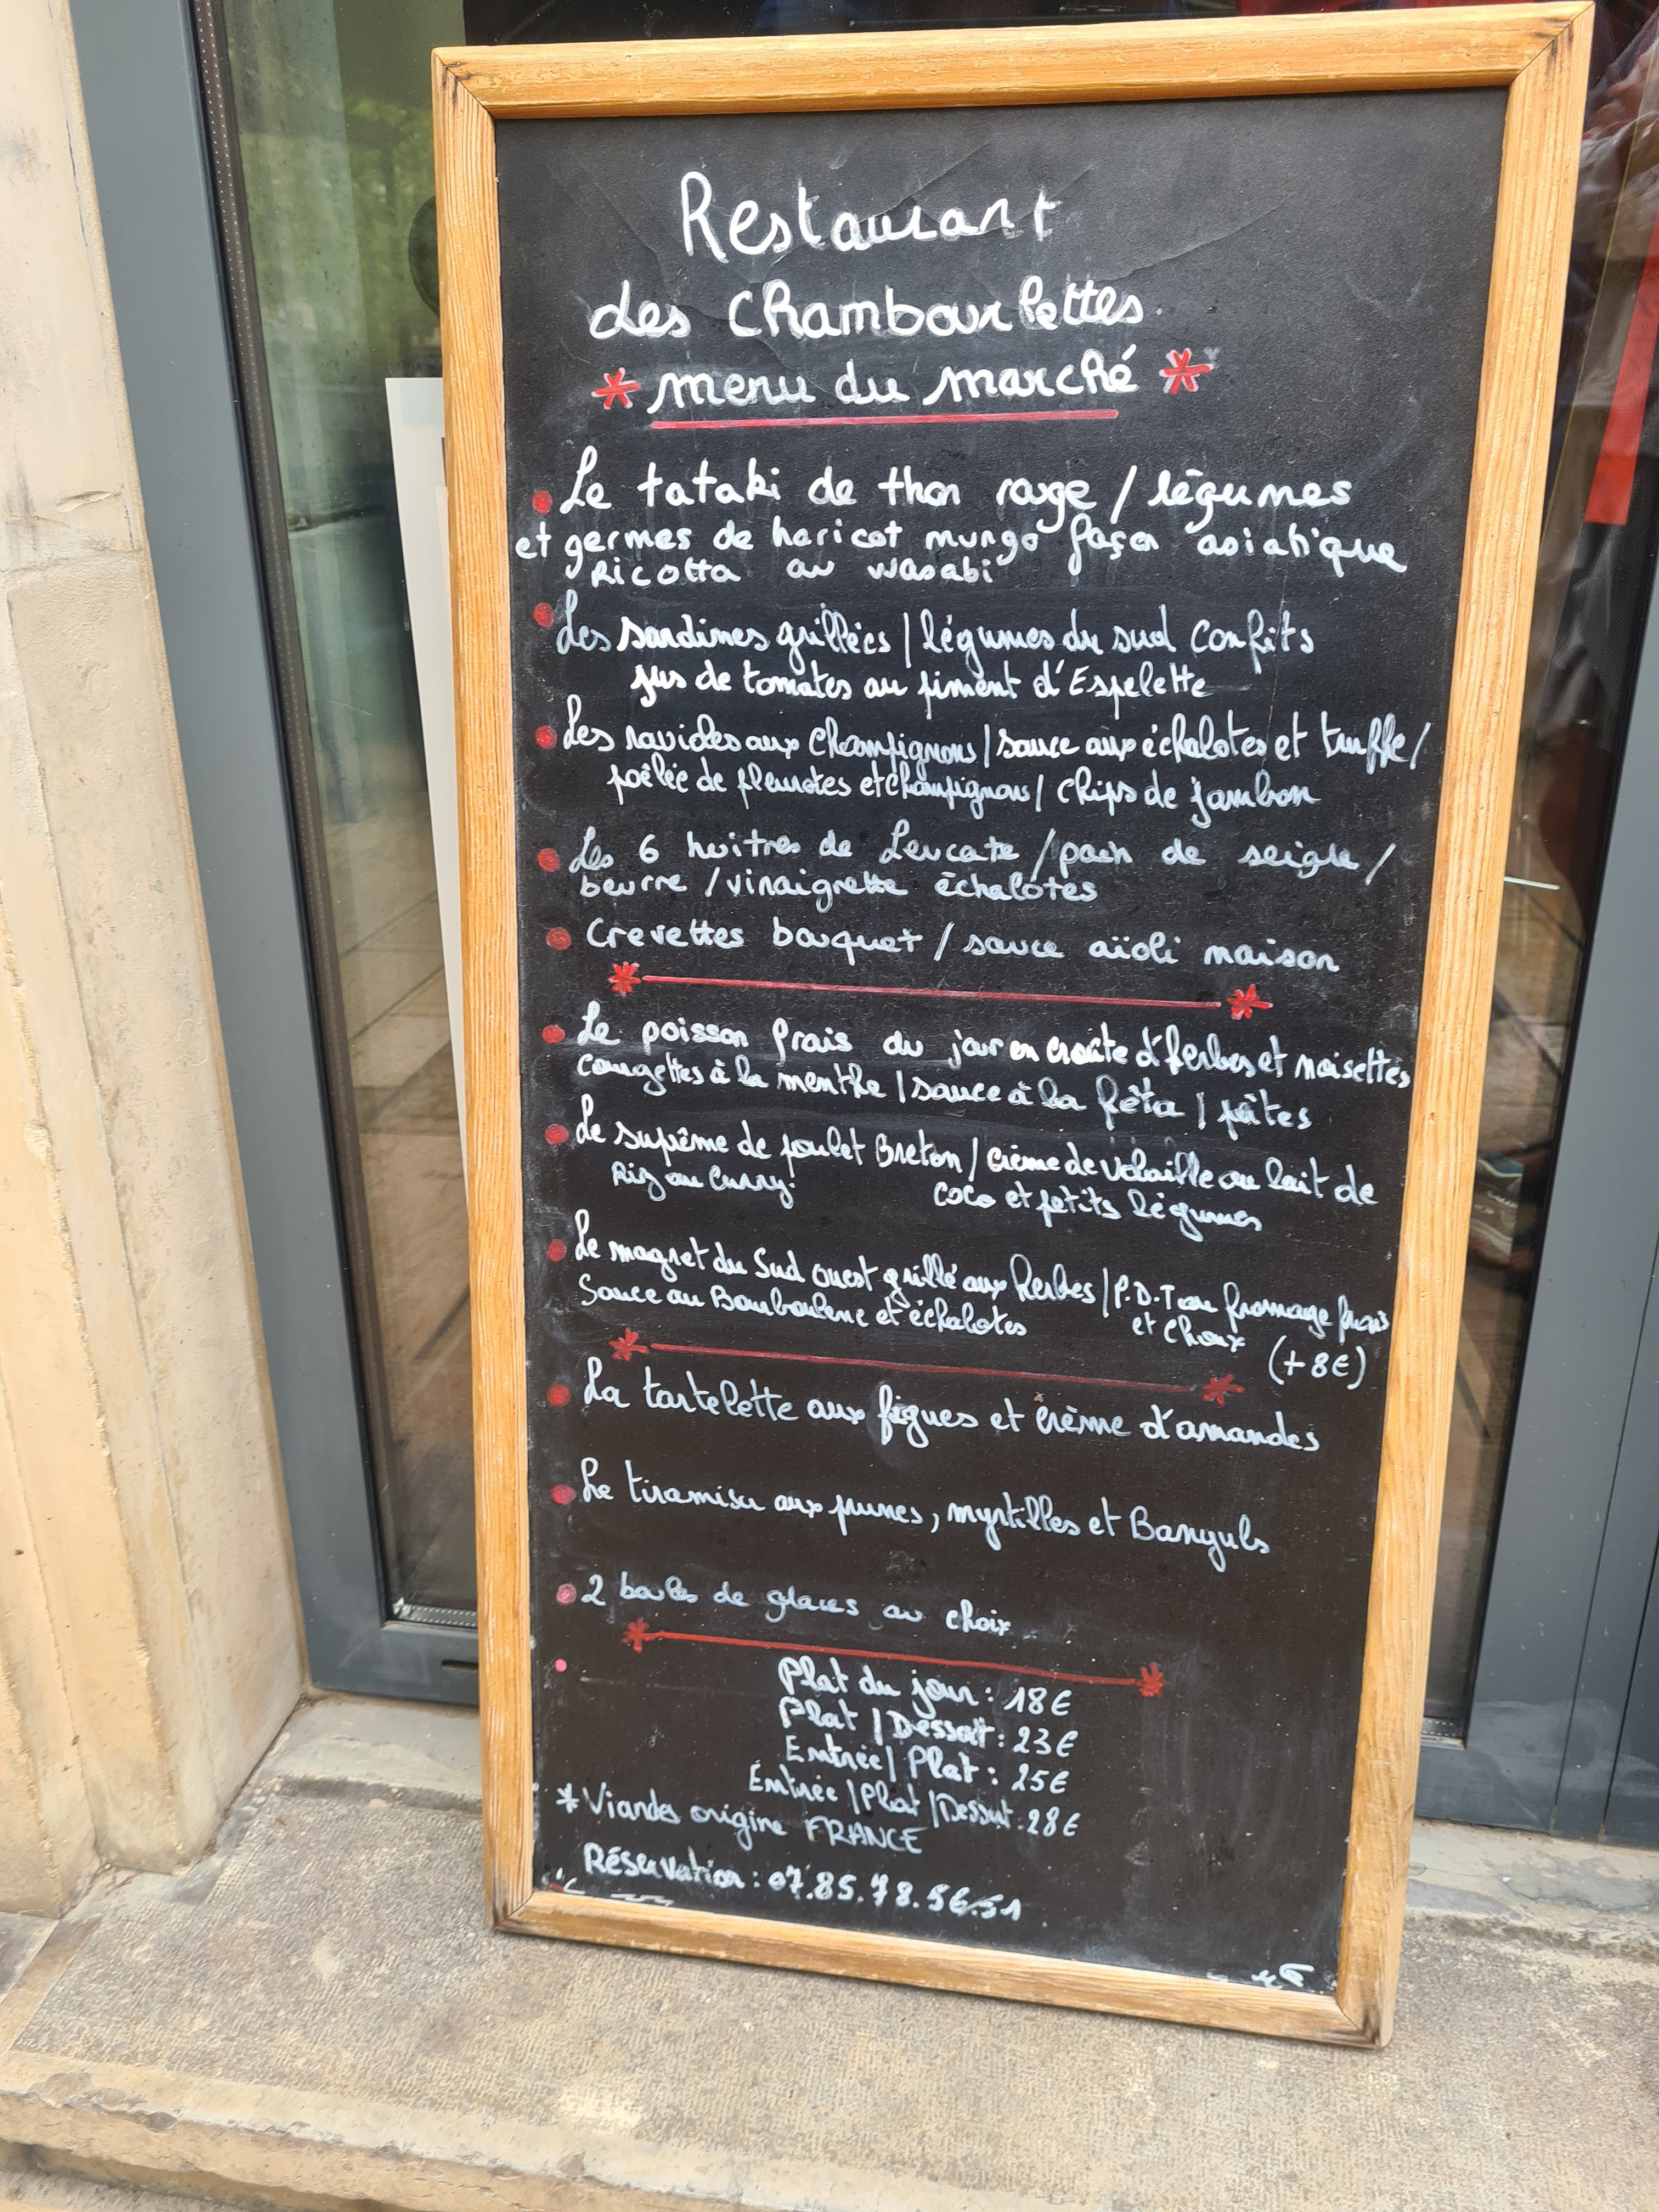 Restaurant
des Chambourlettes
* menu du marché *
• Le tataki de thon rouge / légumes
et germes de haricot mungo façon asiatique
Ricotta au wasabi
• Les sardines grillées | légumes du sud confits
jus de tomates au piment d'Espelette
• Les ravioles aux champignons | sauce aux échalotes et truffe /
poêlée de pleurotes et champignons | chips de jambon
• Les 6 huitres de Leucate / pain de seigle /
beurre / vinaigrette échalotes
• Crevettes bouquet / sauce aïoli maison
• Le poisson frais du jour en croûte d'herbes et noisettes
courgettes à la menthe | sauce à la fêta | pâtes
• Le suprême de poulet Breton | crème de volaille au lait de
Riz au Curry. coco et petits légumes
• Le magret du Sud ouest grillé aux herbes | P.D.T au fromage frais
Sauce au Bourboulenc et échalotes et choux (+8€)
• La tartelette aux figues et crème d'amandes
• Le tiramisu aux prunes, myrtilles et Banyuls
• 2 boules de glaces au choix
Plat du jour : 18€
Plat | Dessert : 23€
Entrée | Plat : 25€
Entrée | Plat | Dessert : 28€
* Viandes origine FRANCE
Réservation : 07.85.78.56.51